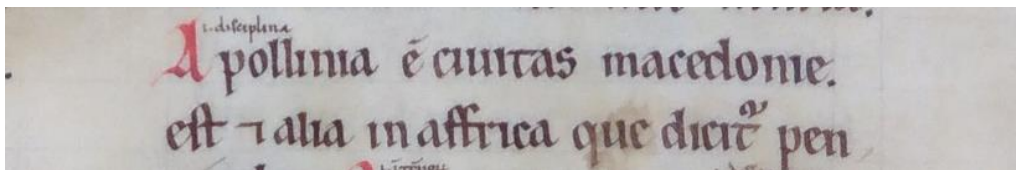 i. disceplina
Apollinia ē ciuitas macedonie.
est ⁊ alia in affrica que dicit᷑ pen